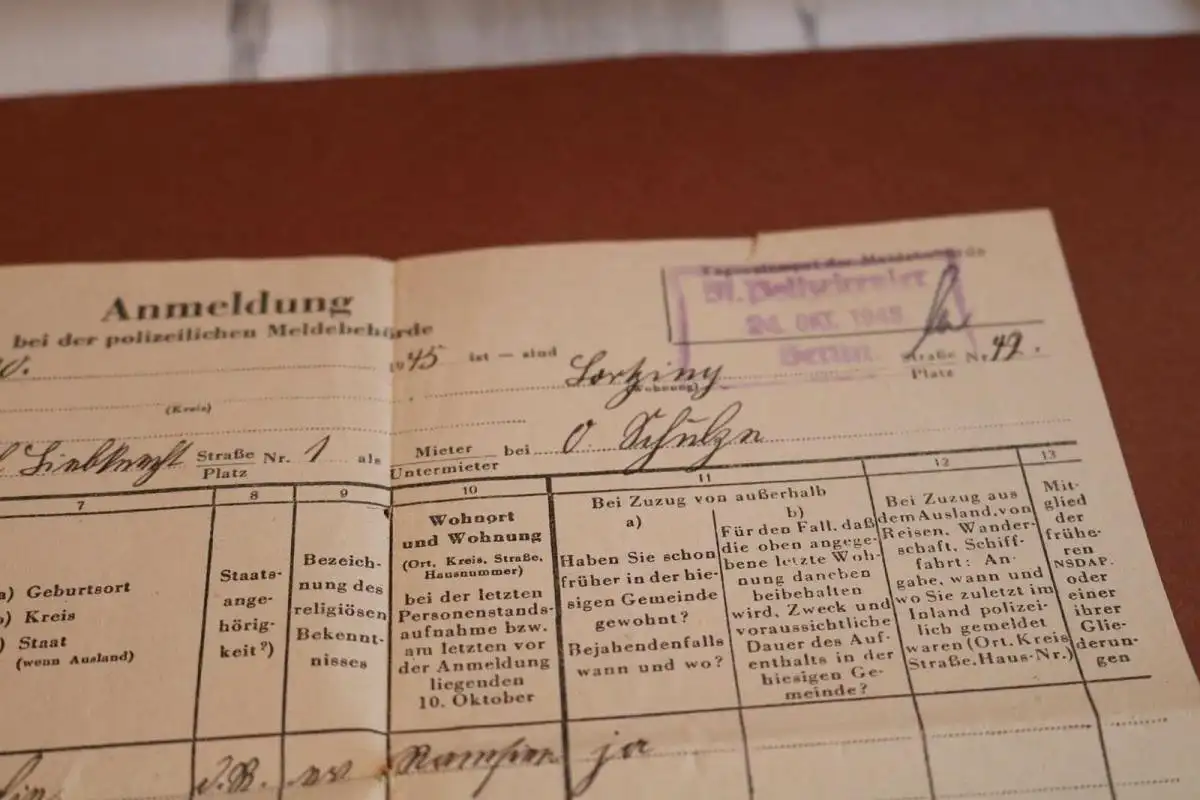 Tagesstempel der Meldebehörde
24. OKT. 1945
Berlin
Anmeldung
bei der polizeilichen Meldebehörde
1945 ist — sind Lortzing Straße Nr. 42.
(Wohnung) Platz
(Kreis)
Liebknecht Straße Nr. 1 als Mieter bei O. Schulze
Platz Untermieter
7 8 9 10 11 12 13
a) Geburtsort
b) Kreis
c) Staat
(wenn Ausland)
Staats-
ange-
hörig-
keit²)
Bezeich-
nung des
religiösen
Bekennt-
nisses
Wohnort
und Wohnung
(Ort, Kreis, Straße,
Hausnummer)
bei der letzten
Personenstands-
aufnahme bzw.
am letzten vor
der Anmeldung
liegenden
10. Oktober
Bei Zuzug von außerhalb
a)
Haben Sie schon
früher in der hie-
sigen Gemeinde
gewohnt?
Bejahendenfalls
wann und wo?
b)
Für den Fall, daß
die oben angege-
bene letzte Woh-
nung daneben
beibehalten
wird, Zweck und
voraussichtliche
Dauer des Auf-
enthalts in der
hiesigen Ge-
meinde?
Bei Zuzug aus
dem Ausland, von
Reisen, Wander-
schaft, Schiff-
fahrt: An-
gabe, wann und
wo Sie zuletzt im
Inland polizei-
lich gemeldet
waren (Ort, Kreis,
Straße, Haus-Nr.)
Mit-
glied
der
frühe-
ren
NSDAP.
oder
einer
ihrer
Glie-
derun-
gen
D.R. ev ja